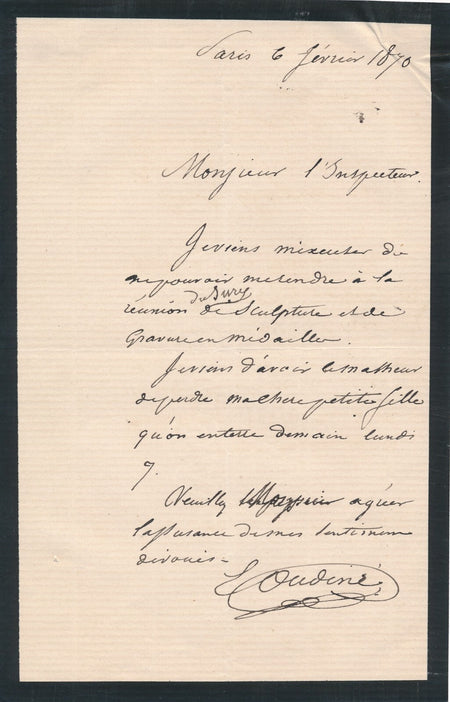 Paris 6 février 1870
Monsieur l'Inspecteur.
Je viens m'excuser de
ne pouvoir me rendre à la
réunion du Jury de Sculpture et de
Gravure en médailles.
Je viens d'avoir le malheur
de perdre ma chère petite fille
qu'on enterre demain lundi
7.
Veuillez Monsieur agréer
l'assurance de mes sentimens
dévoués
E Oudiné